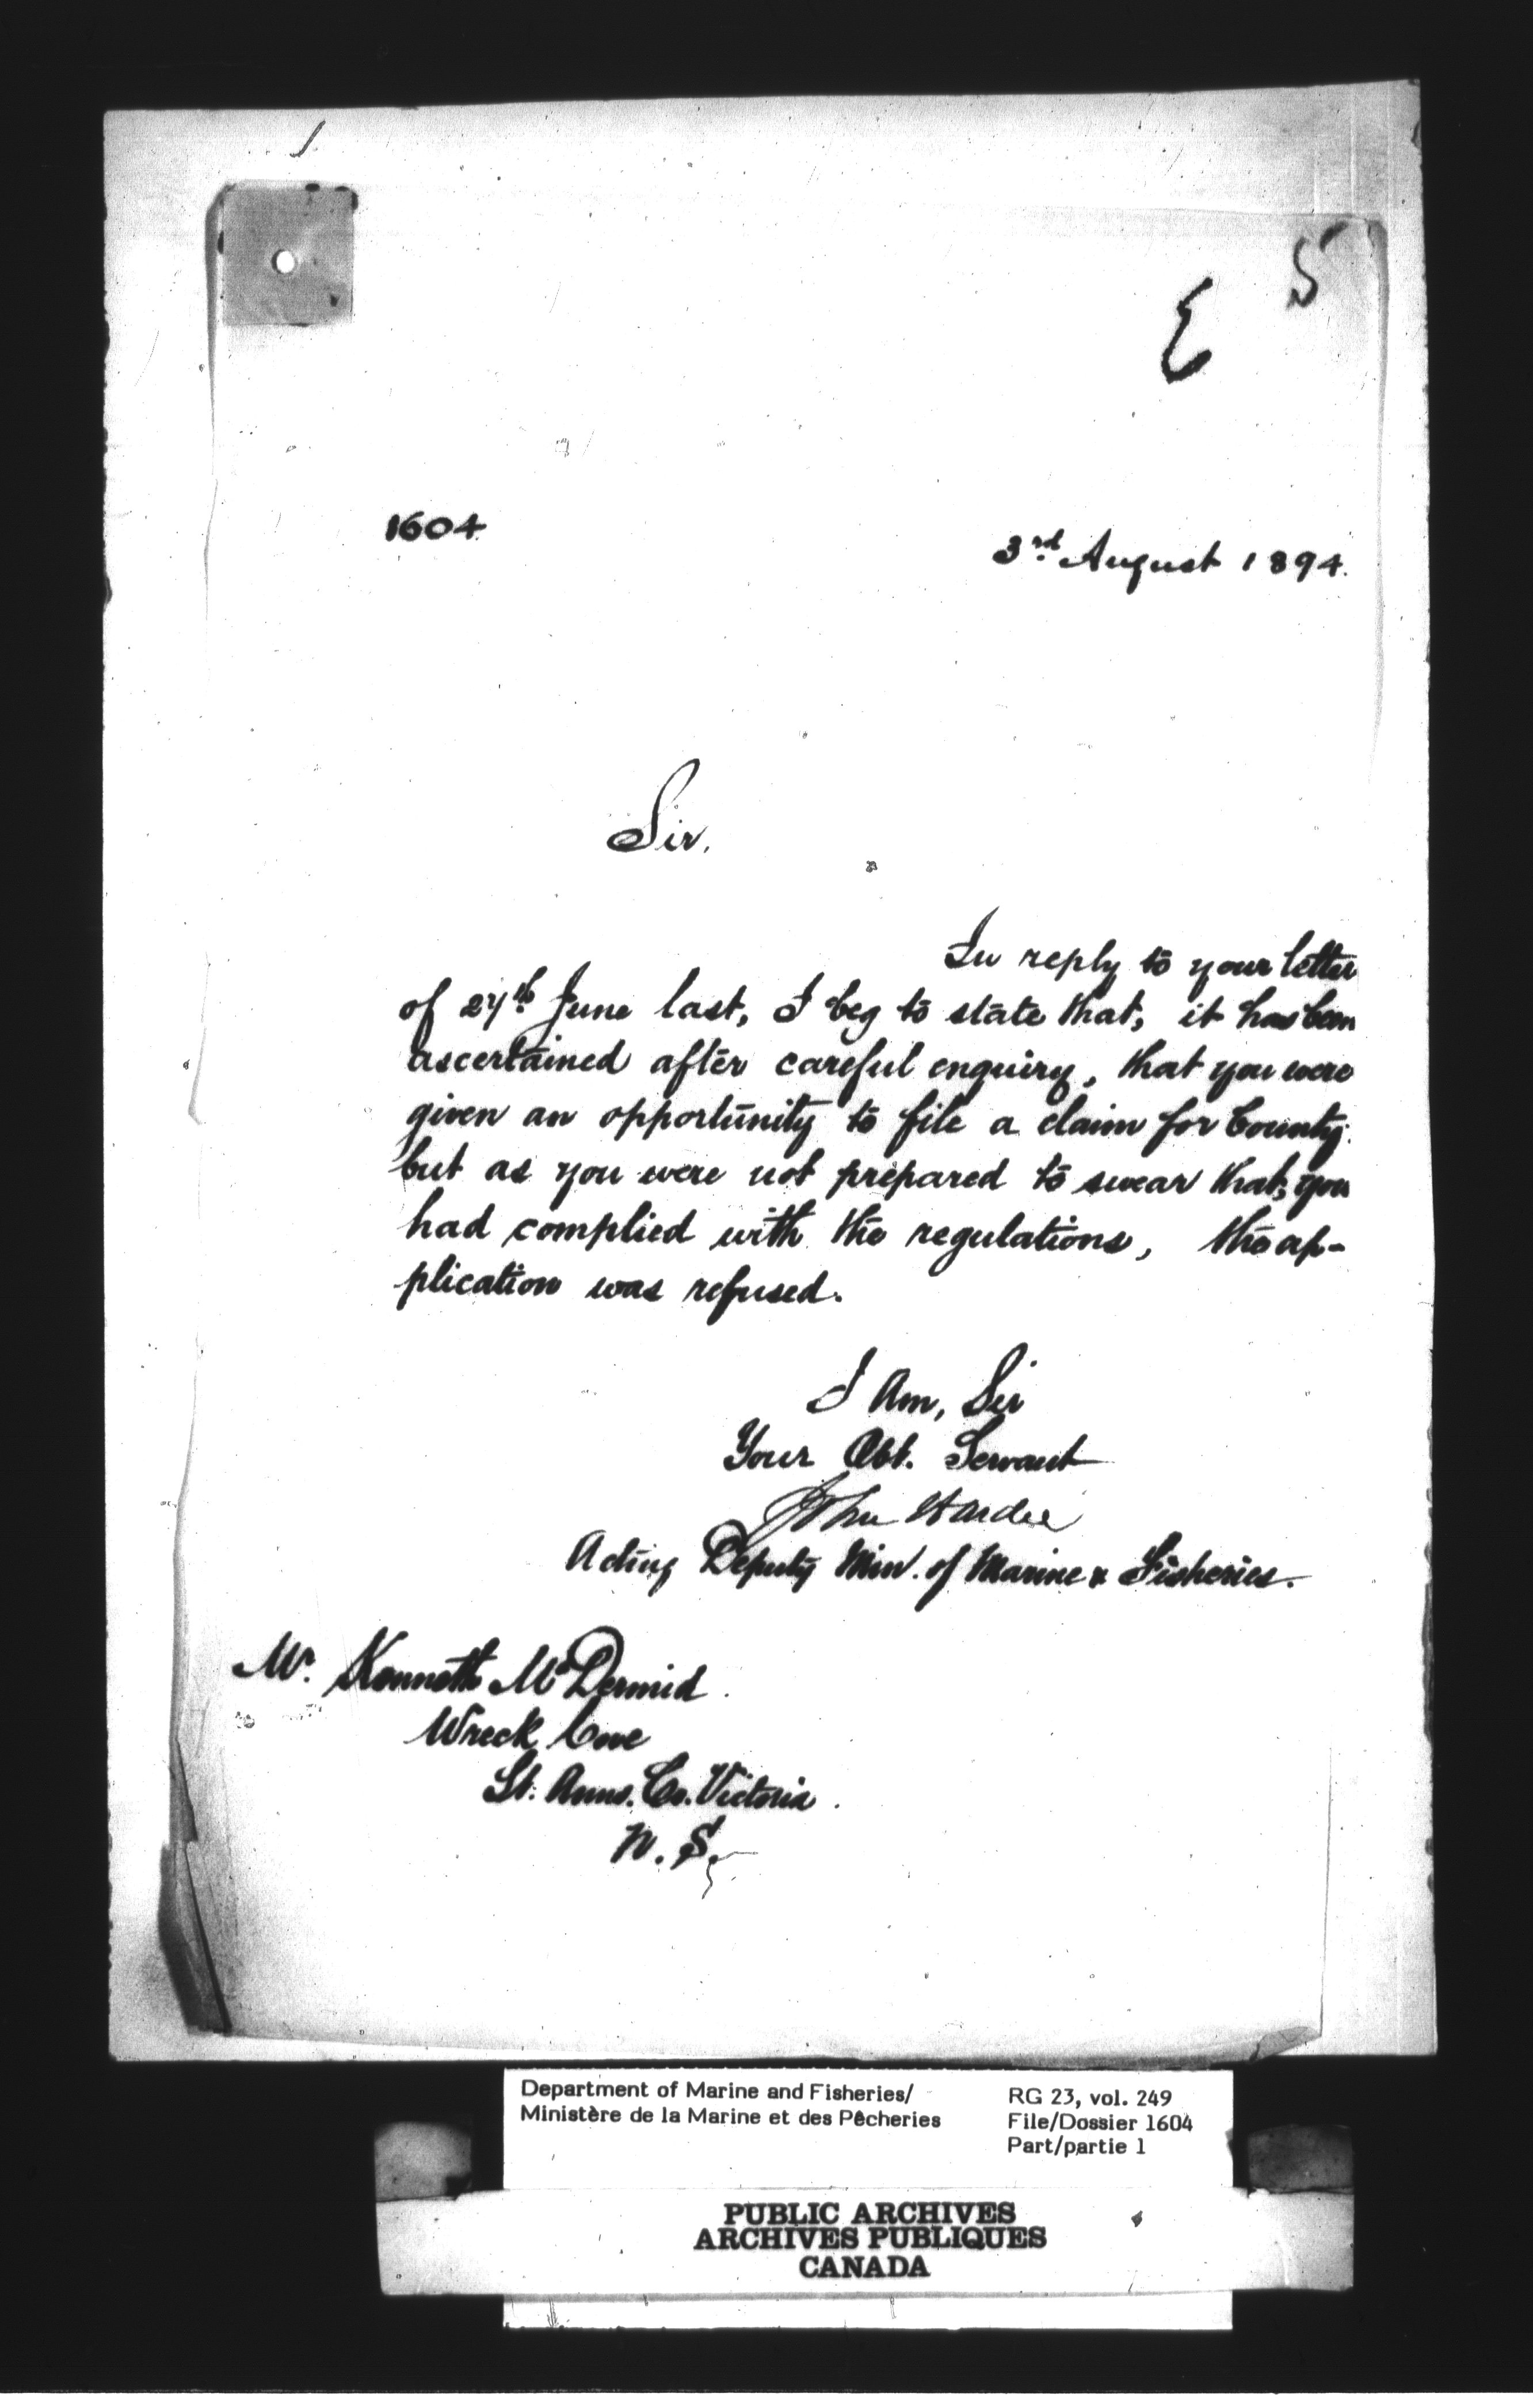 E 5
1604
3rd August 1894.
Sir,
In reply to your letter
of 27th June last, I beg to state that, it has been
ascertained after careful enquiry, that you were
given an opportunity to file a claim for bounty,
but as you were not prepared to swear that, you
had complied with the regulations, the ap-
plication was refused.
I Am, Sir
Your Obt. Servant
John Hardie
Acting Deputy Min. of Marine & Fisheries.
Mr. Kenneth McDermid
Wreck Cove
St. Anns. Co. Victoria
N. S.
Department of Marine and Fisheries/
Ministère de la Marine et des Pêcheries
RG 23, vol. 249
File/Dossier 1604
Part/partie 1
PUBLIC ARCHIVES
ARCHIVES PUBLIQUES
CANADA